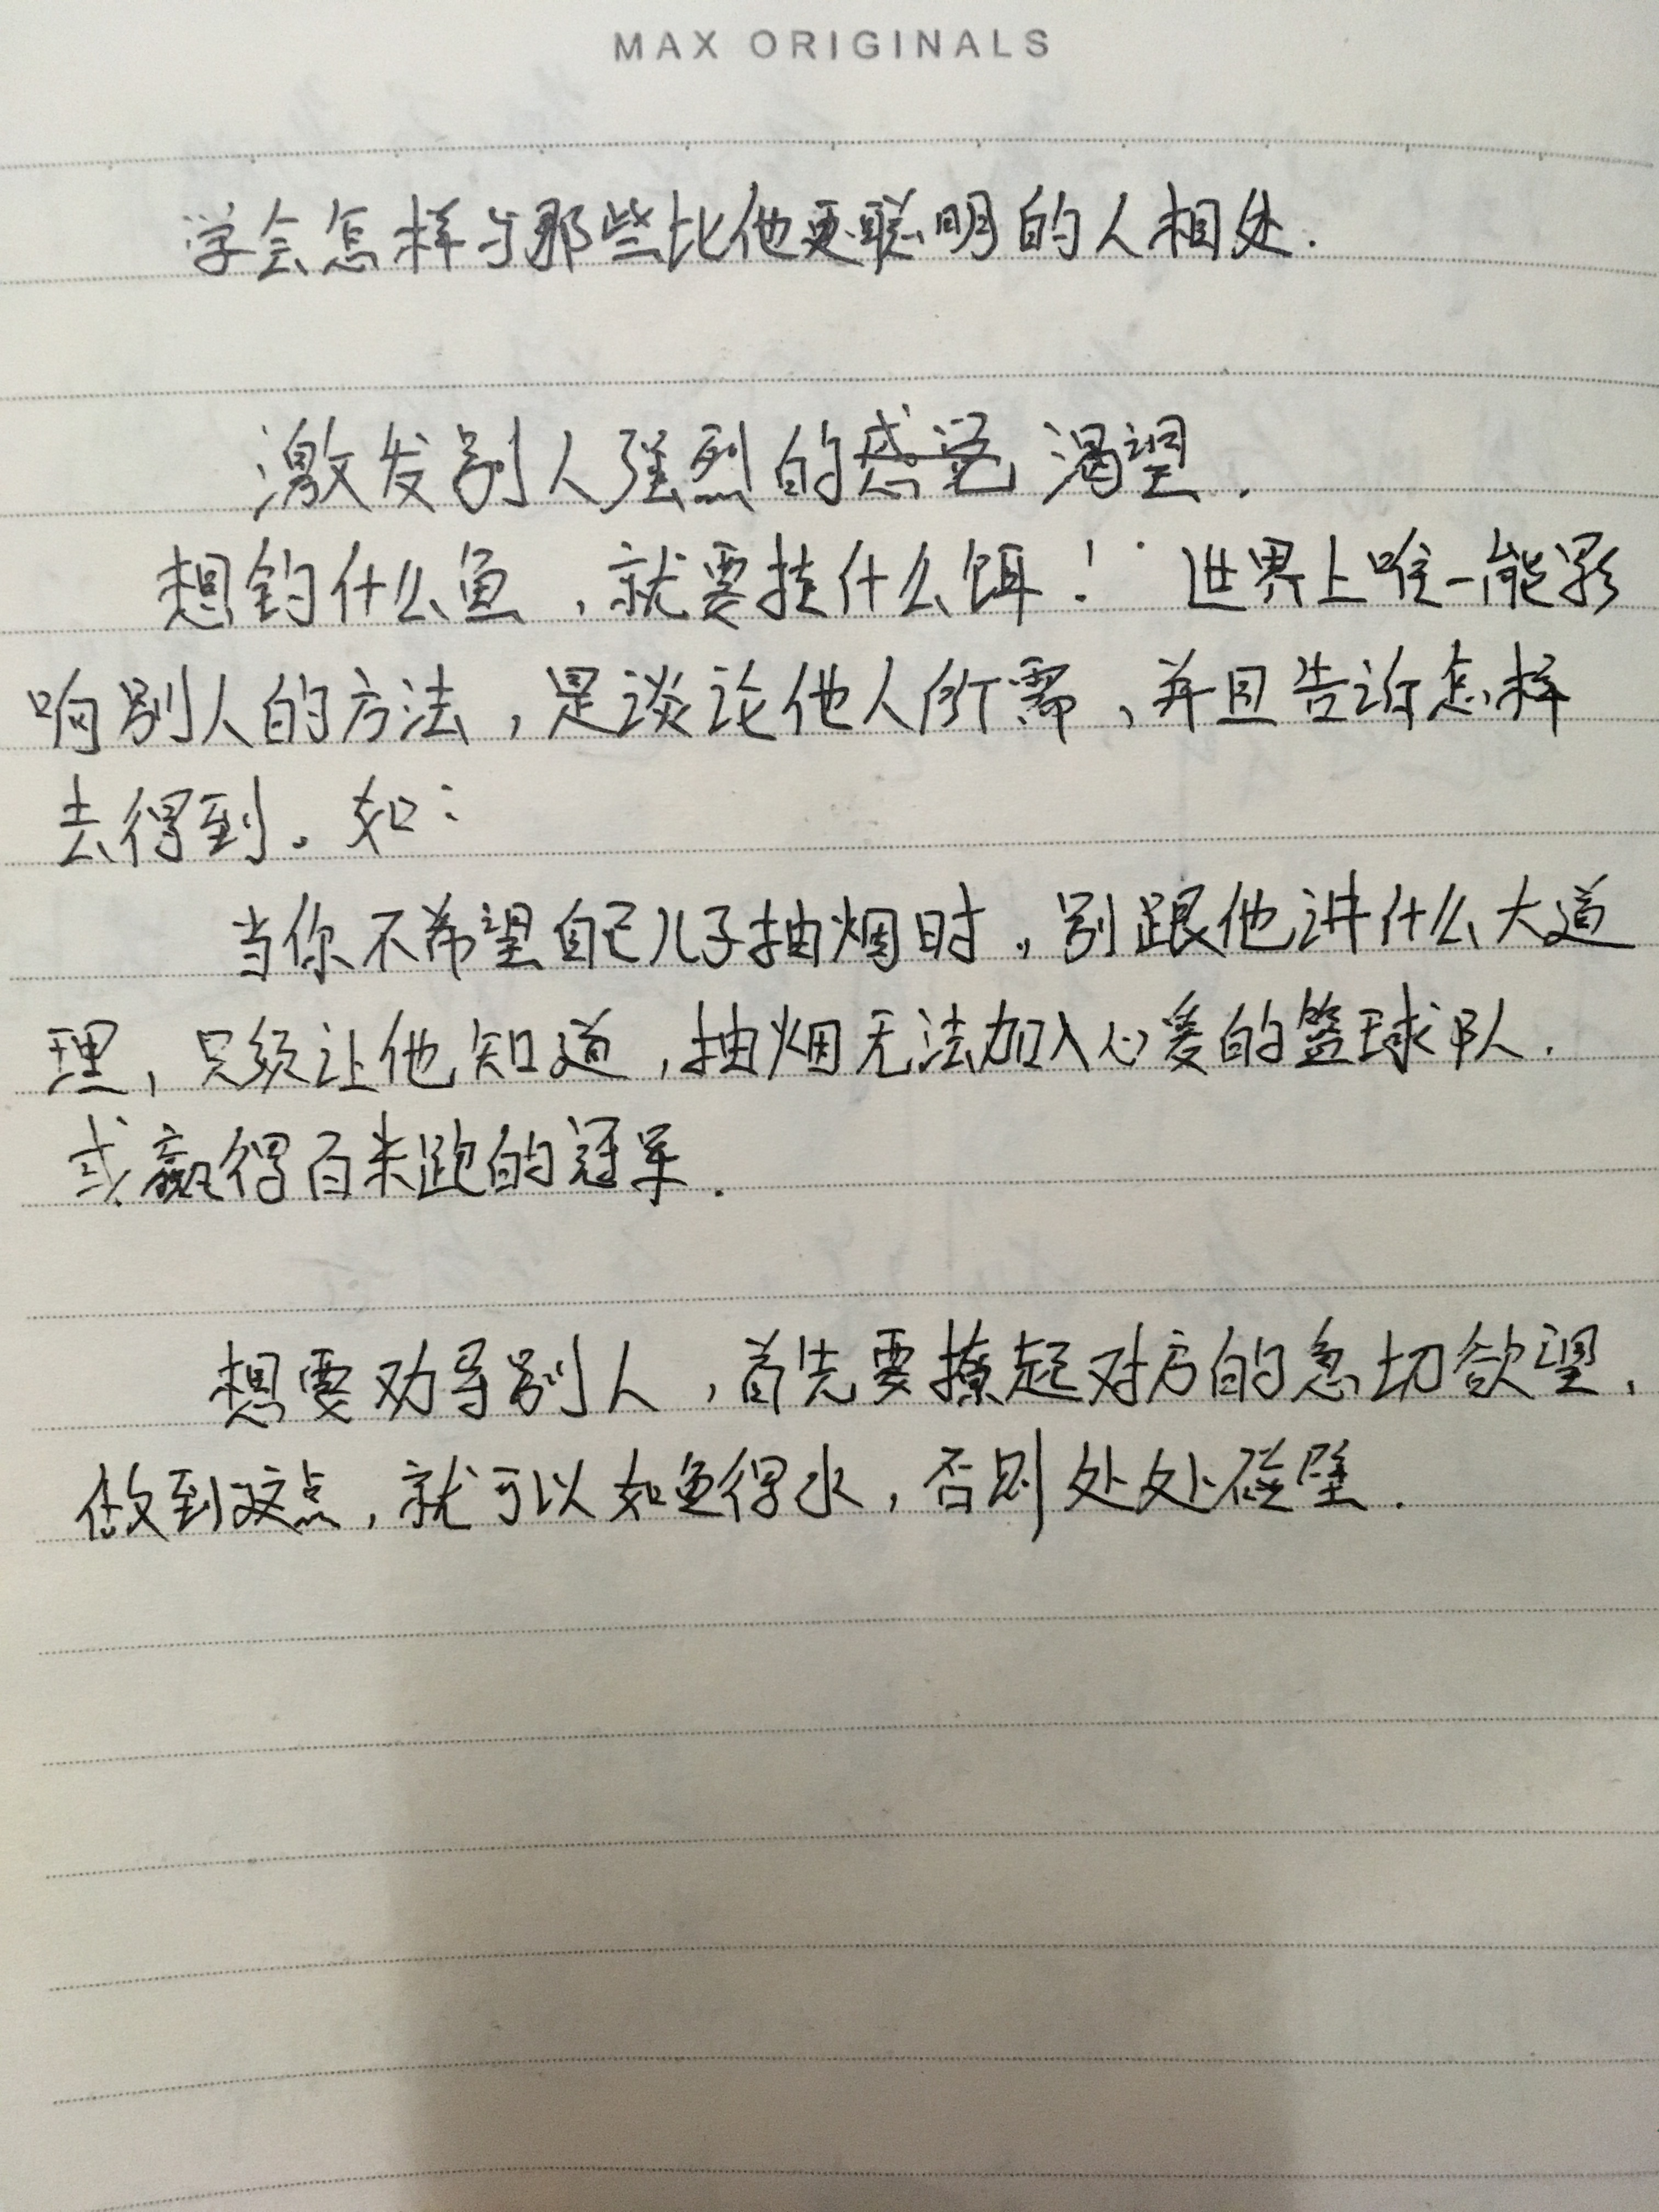 MAX ORIGINALS
学会怎样与那些比他更聪明的人相处.
激发别人强烈的感觉渴望.
想钓什么鱼,就要挂什么饵! 世界上唯一能影
响别人的方法,是谈论他人所需,并且告诉怎样
去得到。如:
当你不希望自己儿子抽烟时,别跟他讲什么大道
理,只须让他知道,抽烟无法加入心爱的篮球队.
或赢得百米跑的冠军.
想要劝导别人,首先要撩起对方的急切欲望,
做到这点,就可以如鱼得水,否则处处碰壁.